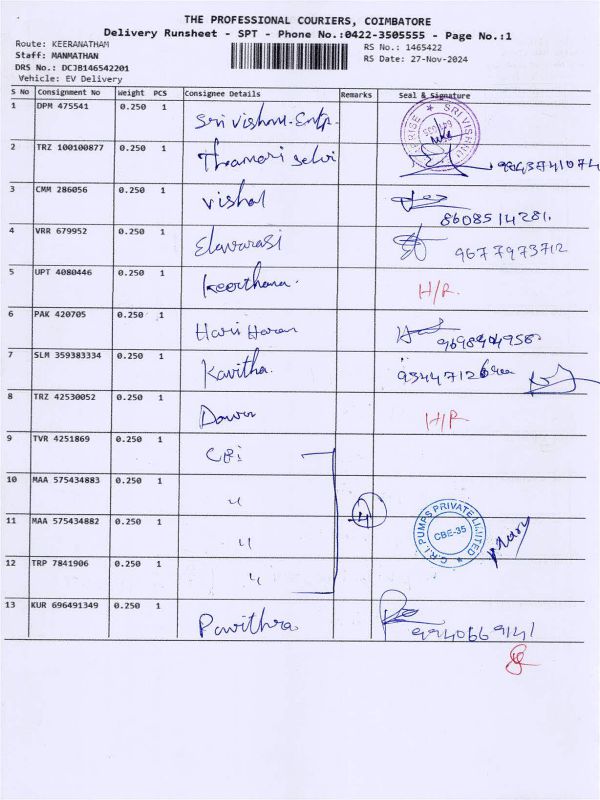 THE PROFESSIONAL COURIERS, COIMBATORE
Delivery Runsheet - SPT - Phone No.:0422-3505555 - Page No.:1
Route: KEERANATHAM RS No.: 1465422
Staff: MANMATHAN RS Date: 27-Nov-2024
DRS No.: DCJB146542201
Vehicle: EV Delivery
S No Consignment No Weight PCS Consignee Details Remarks Seal & Signature
1 DPM 475541 0.250 1 Sri Vishnu. Entp. SRI VISHNU
2 TRZ 100100877 0.250 1 Thamari Selvi
3 CMM 286056 0.250 1 Vishal 8608514281.
4 VRR 679952 0.250 1 Elavarasi 9677973712
5 UPT 4080446 0.250 1 Keerthana. H/R.
6 PAK 420705 0.250 1 Hari Haran
7 SLM 359383334 0.250 1 Kavitha.
8 TRZ 42530052 0.250 1 H/R
9 TVR 4251869 0.250 1 CRi
10 MAA 575434883 0.250 1 " 4
11 MAA 575434882 0.250 1 " C.R.I. PUMPS PRIVATE LIMITED CBE-35
12 TRP 7841906 0.250 1 "
13 KUR 696491349 0.250 1 Pavithra 9940669141